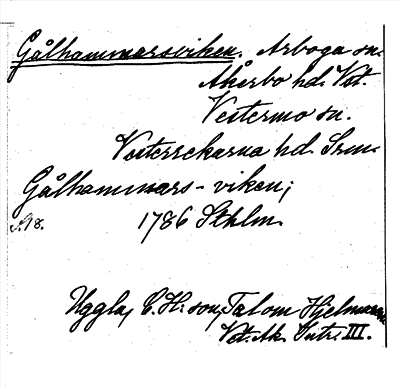 Gålhammarsviken. Arboga sn.
Åkerbo hd. Vst.
Vestermo sn.
Vesterrekarna hd. Srm.
Gålhammars-viken;
s. 18. 1786 Sthlm.
Uggla, C. H:son, Tal om Hjelmaren
Vet. Ak. Intr. III.